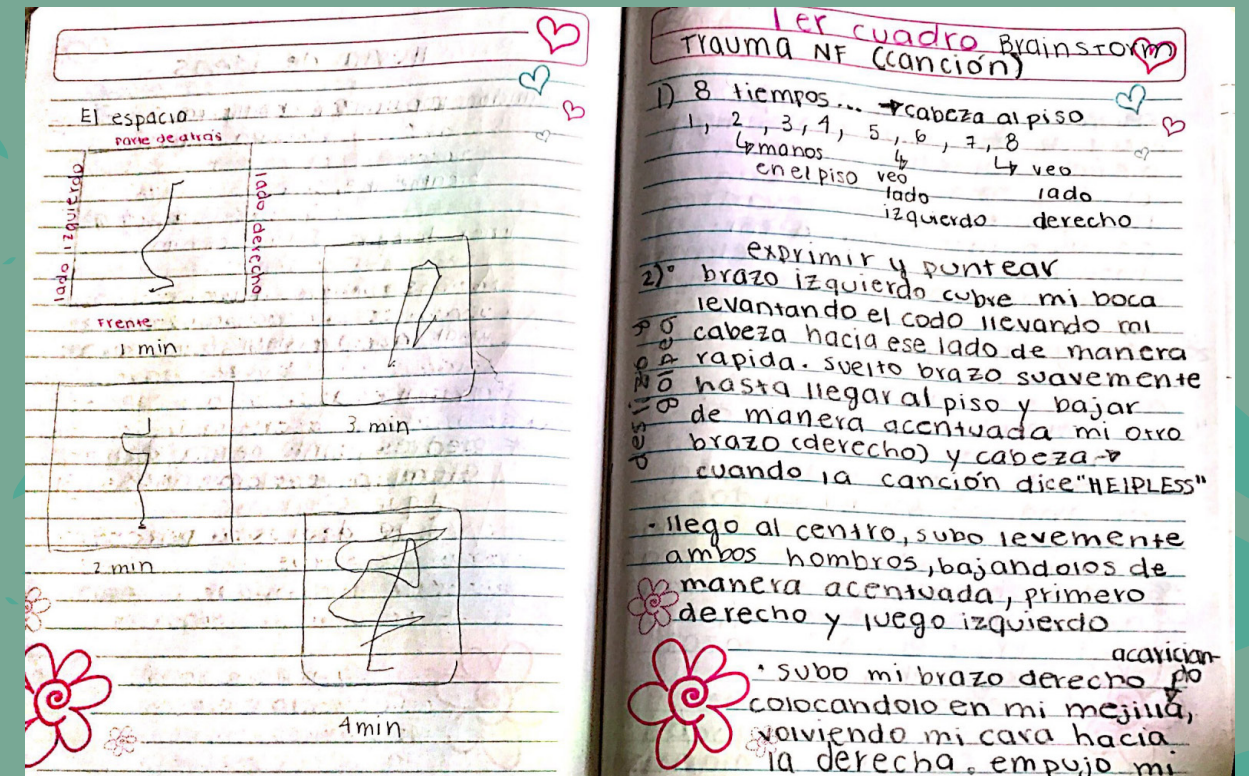 El espacio
Parte de atrás
lado izquierdo
lado derecho
Frente
1 min
2 min
3 min
4 min
1er cuadro Brainstorm
Trauma NF (canción)
1) 8 tiempos... → cabeza al piso
1, 2, 3, 4, 5, 6, 7, 8
↳ manos ↳ ↳ veo
en el piso veo lado
lado derecho
izquierdo
exprimir y puntear
2)• brazo izquierdo cubre mi boca
levantando el codo llevando mi
cabeza hacia ese lado de manera
rapida. suelto brazo suavemente
hasta llegar al piso y bajar
de manera acentuada mi otro
brazo (derecho) y cabeza →
cuando la canción dice "HElPLESS"
deslizo y
golpeo
• llego al centro, subo levemente
ambos hombros, bajandolos de
manera acentuada, primero
derecho y luego izquierdo
acarician-
do
• subo mi brazo derecho
colocandolo en mi mejilla,
volviendo mi cara hacia
la derecha. empujo mi